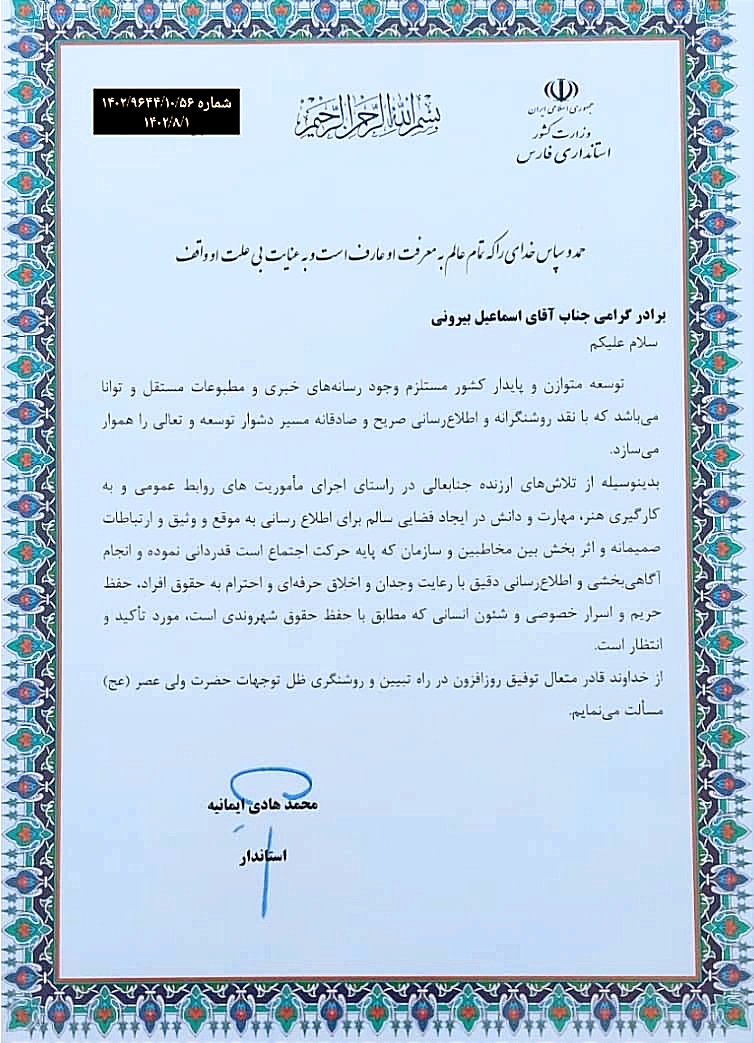 جمهوری اسلامی ایران
وزارت کشور
استانداری فارس
بسم الله الرحمن الرحیم
شماره ۱۴۰۲/۹۶۴۴/۱۰/۵۶
۱۴۰۲/۸/۱
حمد و سپاس خدای را که تمام عالم به معرفت او عارف است و به عنایت بی علت او واقف
برادر گرامی جناب آقای اسماعیل بیرونی
سلام علیکم
توسعه متوازن و پایدار کشور مستلزم وجود رسانه‌های خبری و مطبوعات مستقل و توانا
می‌باشد که با نقد روشنگرانه و اطلاع‌رسانی صریح و صادقانه مسیر دشوار توسعه و تعالی را هموار
می‌سازد.
بدینوسیله از تلاش‌های ارزنده جنابعالی در راستای اجرای مأموریت های روابط عمومی و به
کارگیری هنر، مهارت و دانش در ایجاد فضایی سالم برای اطلاع رسانی به موقع و وثیق و ارتباطات
صمیمانه و اثر بخش بین مخاطبین و سازمان که پایه حرکت اجتماع است قدردانی نموده و انجام
آگاهی‌بخشی و اطلاع‌رسانی دقیق با رعایت وجدان و اخلاق حرفه‌ای و احترام به حقوق افراد، حفظ
حریم و اسرار خصوصی و شئون انسانی که مطابق با حفظ حقوق شهروندی است، مورد تأکید و
انتظار است.
از خداوند قادر متعال توفیق روزافزون در راه تبیین و روشنگری ظل توجهات حضرت ولی عصر (عج)
مسألت می‌نمایم.
محمد هادی ایمانیه
استاندار